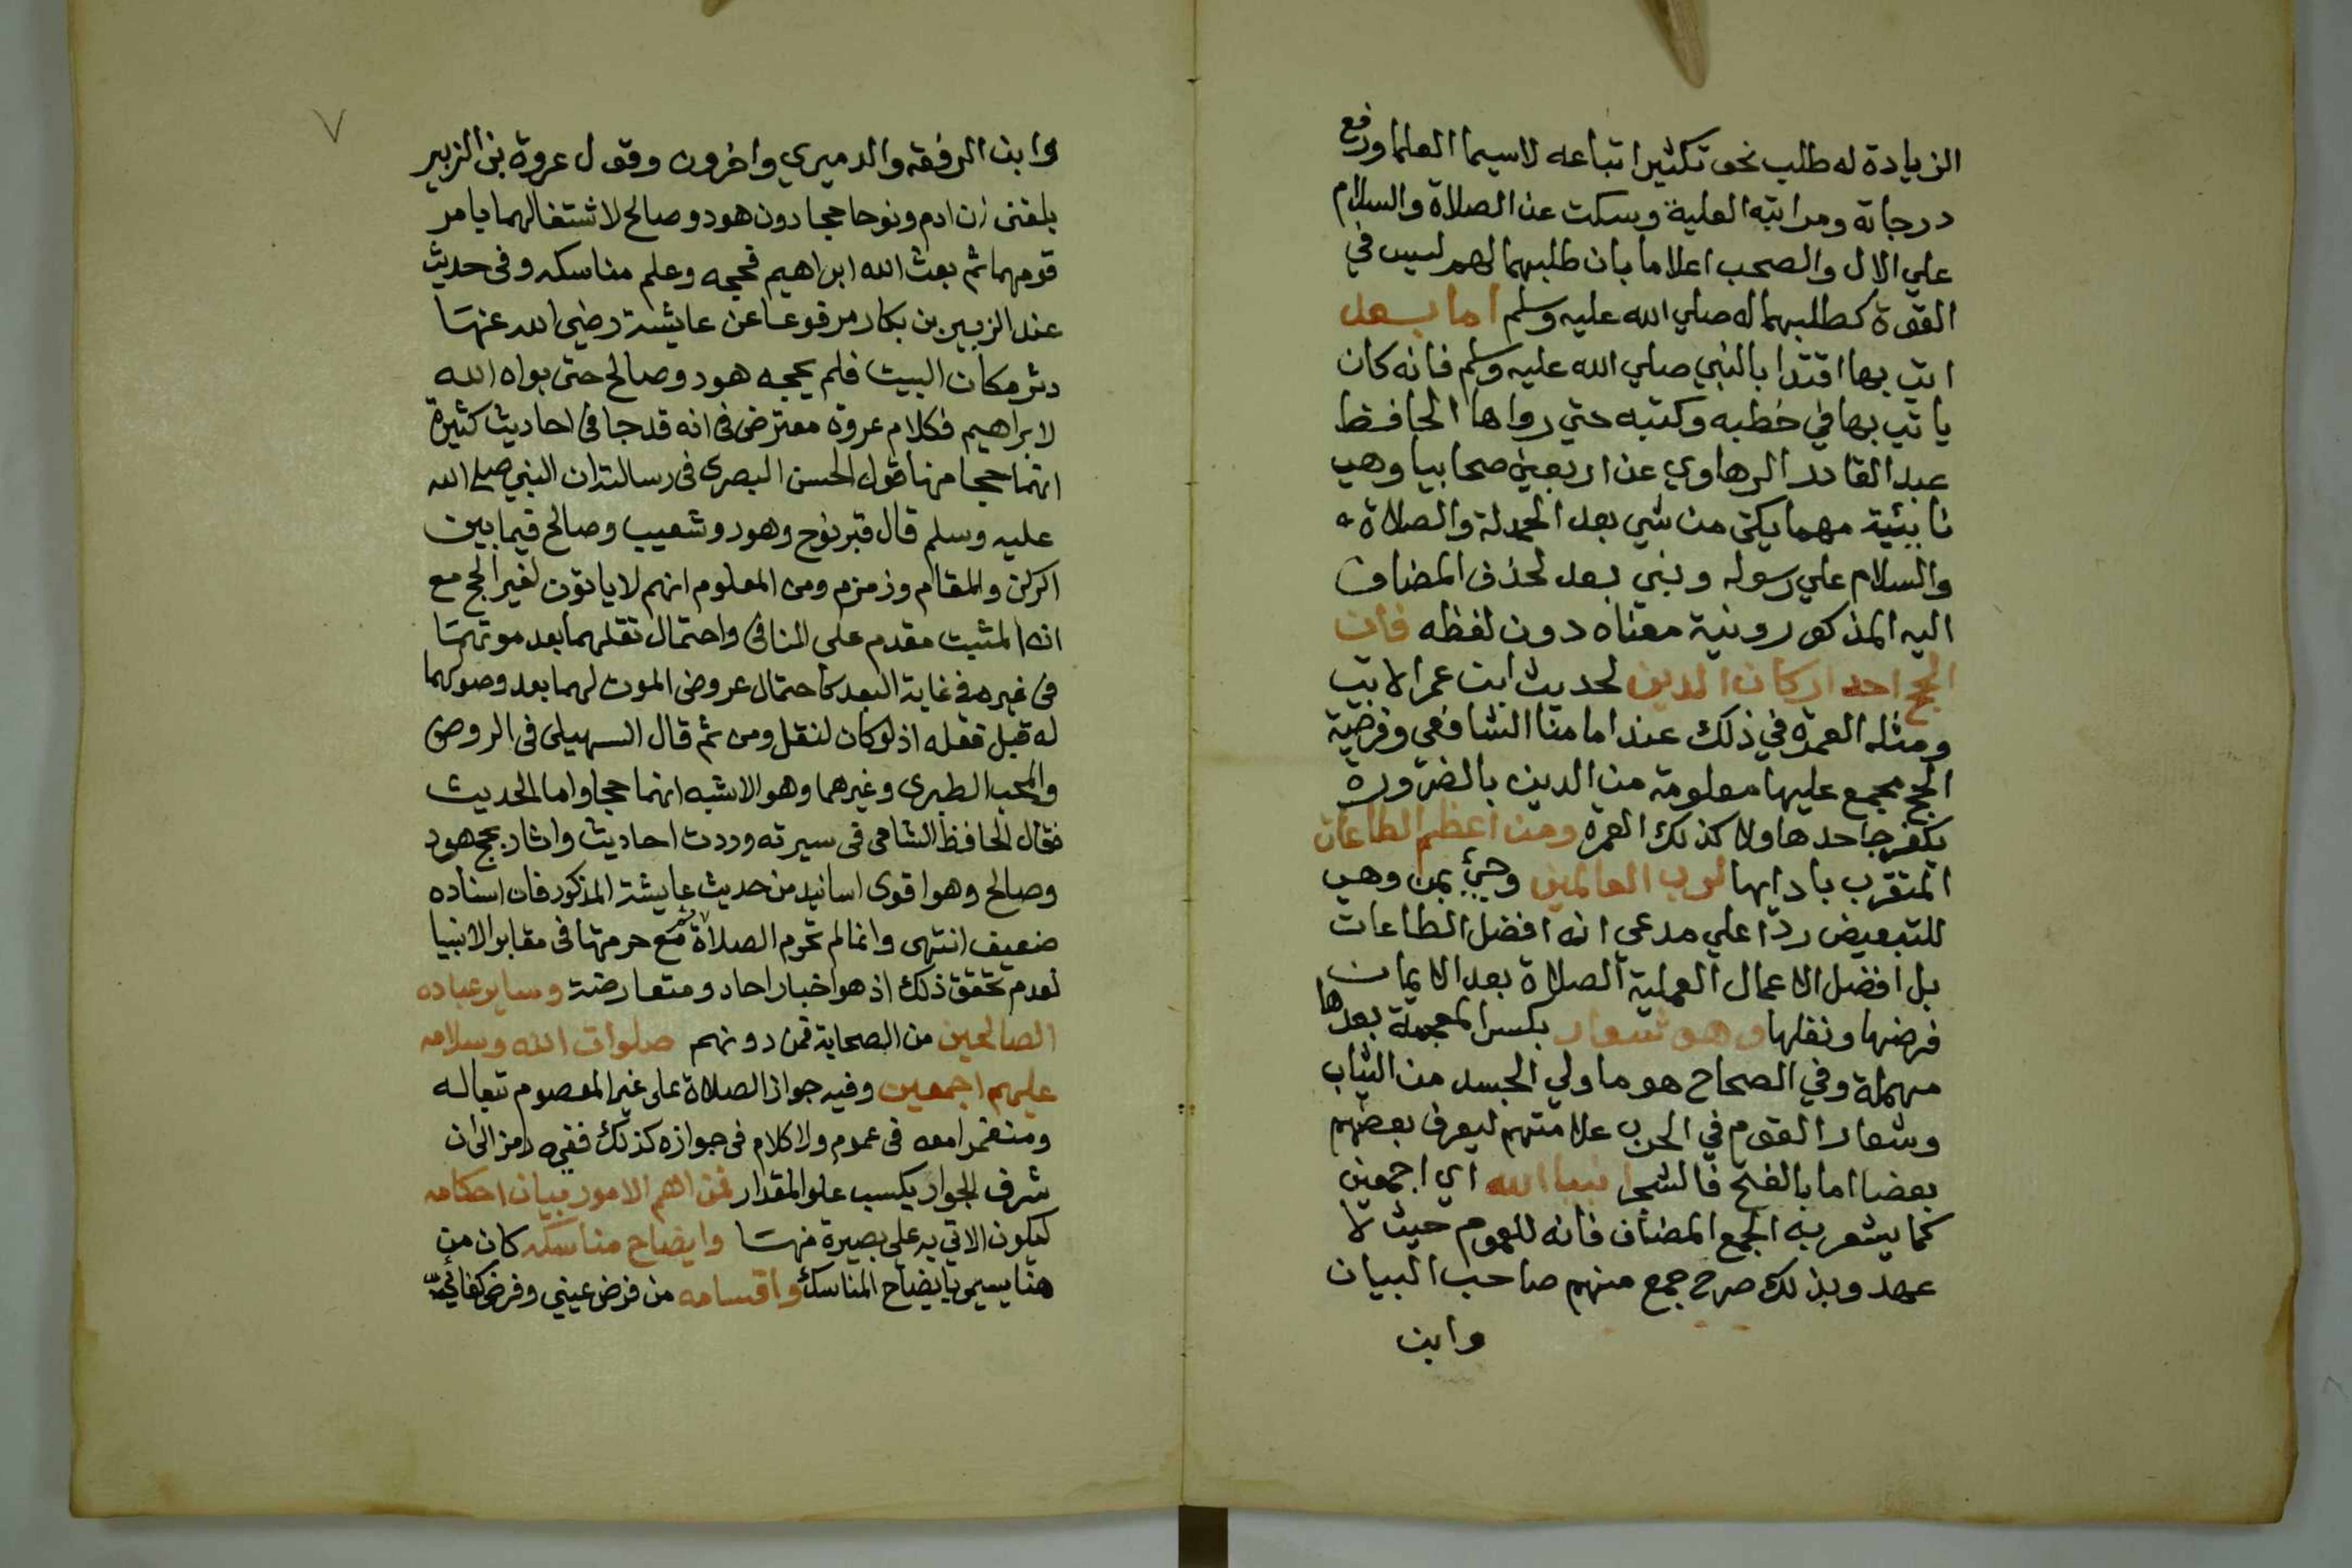 الزيادة له طلب نحو تكثير اتباعه لاسيما العلما ورفع
درجاته ومراتبه العلية وسكت عن الصلاة والسلام
علي الال والصحب اعلاما بان طلبهما لهم ليس في
القوة كطلبهما له صلي الله عليه وسلم اما بعد
اتي بها اقتدا بالنبي صلي الله عليه وسلم فانه كان
ياتي بها في خطبه وكتبه حتي رواها الحافظ
عبد القادر الرهاوي عن اربعين صحابيا وهي
نايبة مهما يكن من شي بعد الحمدلة والصلاة
والسلام علي رسوله وبني بعد لحذف المضاف
اليه المذكور ونية معناه دون لفظه فان
الحج احد اركان الدين لحديث ابن عمر الاتي
ومثله العمرة في ذلك عند امامنا الشافعي وفرضية
الحج مجمع عليها معلومة من الدين بالضرورة
يكفر جاحدها ولا كذلك العمرة ومن اعظم الطاعات
المتقرب بادايها لرب العالمين وجئ بمن وهي
للتبعيض ردا علي مدعي انه افضل الطاعات
بل افضل الاعمال العملية الصلاة بعد الايمان
فرضها ونفلها وهو شعار بكسر المعجمة بعدها
مهملة وفي الصحاح هو ما ولي الجسد من الثياب
وشعار القوم في الحرب علامتهم ليعرف بعضهم
بعضا اما بالفتح فالشجر انبيا الله اي اجمعين
كما يشعر به الجمع المضاف فانه للعموم حيث لا
عهد وبذلك صرح جمع منهم صاحب البيان
وابن
٧
وابن الرفعة والدميري واخرون وقول عروة بن الزبير
بلغني ان ادم ونوحا حجا دون هود وصالح لاشتغالهما بامر
قومهما ثم بعث الله ابراهيم فحجه وعلم مناسكه وفي حديث
عند الزبير بن بكار مرفوعا عن عايشة رضي الله عنها
دثر مكان البيت فلم يحجه هود وصالح حتى بواه الله
لابراهيم فكلام عروة معترض في انه قد جا في احاديث كثيرة
انهما حجا منها قول الحسن البصري في رسالته ان النبي صلى الله
عليه وسلم قال قبر نوح وهود وشعيب وصالح فيما بين
الركن والمقام وزمزم ومن المعلوم انهم لا ياتون لغير الحج مع
انه المثبت مقدم على النافي واحتمال نقلهما بعد موتهما
في غيره في غاية البعد كاحتمال عروض الموت لهما بعد وصولهما
له قبل فعله اذ لو كان لنقل ومن ثم قال السهيلي في الروض
والمحب الطبري وغيرهما وهو الاشبه انهما حجا واما الحديث
فقال الحافظ الشامي في سيرته وردت احاديث واثار بحج هود
وصالح وهو اقوى اسانيد من حديث عايشة المذكور فان اسناده
ضعيف انتهى وانما لم تحرم الصلاة ثم مع حرمتها في مقابر الانبيا
لعدم تحقق ذلك اذ هو اخبار احاد ومتعارضة وساير عباده
الصالحين من الصحابة فمن دونهم صلوات الله وسلامه
عليهم اجمعين وفيه جواز الصلاة على غير المعصوم تبعا له
ومنغمرا معه في عموم ولا كلام في جوازه كذلك ففيه رمز الى ان
شرف الجوار يكسب علو المقدار فمن اهم الامور بيان احكامه
ليكون الاتي به على بصيرة منها وايضاح مناسكه كان من
هنا يسمى بايضاح المناسك واقسامه من فرض عيني وفرض كفائي